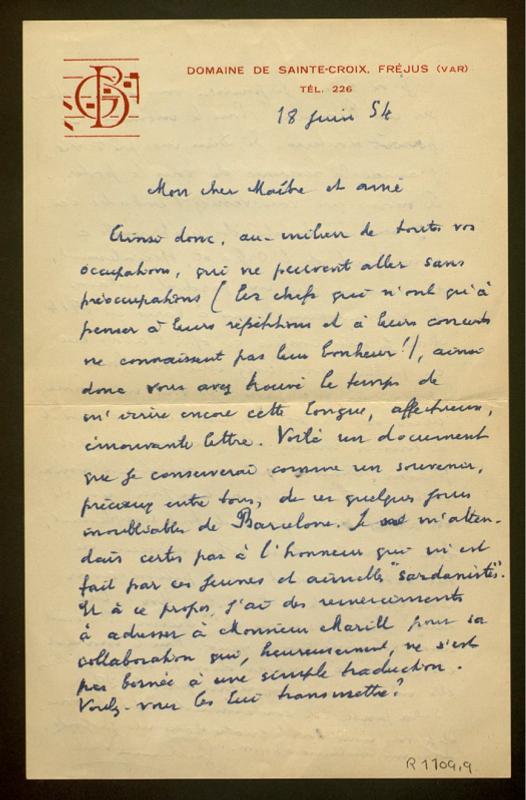 DOMAINE DE SAINTE-CROIX, FRÉJUS (VAR)
TÉL. 226
18 juin 54
Mon cher Maître et ami
Ainsi donc, au milieu de toutes vos
occupations, qui ne peuvent aller sans
préoccupations (les chefs qui n'ont qu'à
penser à leurs répétitions et à leurs concerts
ne connaissent pas leur bonheur!), ainsi
donc vous avez trouvé le temps de
m'écrire encore cette longue, affectueuse,
émouvante lettre. Voilà un document
que je conserverai comme un souvenir,
précieux entre tous, de ces quelques jours
inoubliables de Barcelone. Je m'atten-
dais certes pas à l'honneur qui m'est
fait par ces jeunes et aimables "sardanistes".
Et à ce propos, j'ai des remerciements
à adresser à Monsieur Marill pour sa
collaboration qui, heureusement, ne s'est
pas bornée à une simple traduction.
Voulez-vous les lui transmettre?
R 1709,9